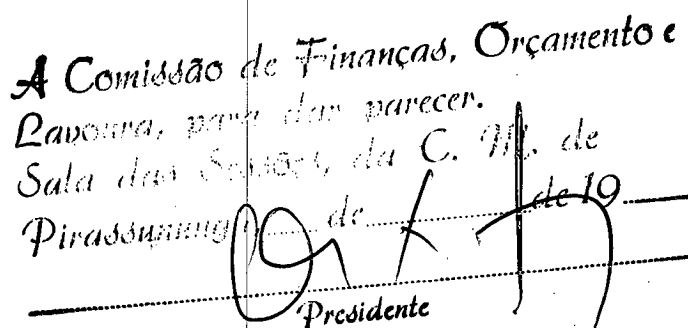 A Comissão de Finanças, Orçamento e
Lavoura, para dar parecer.
Sala das Sessões, da C. M. de
Pirassununga, de de 19
Presidente